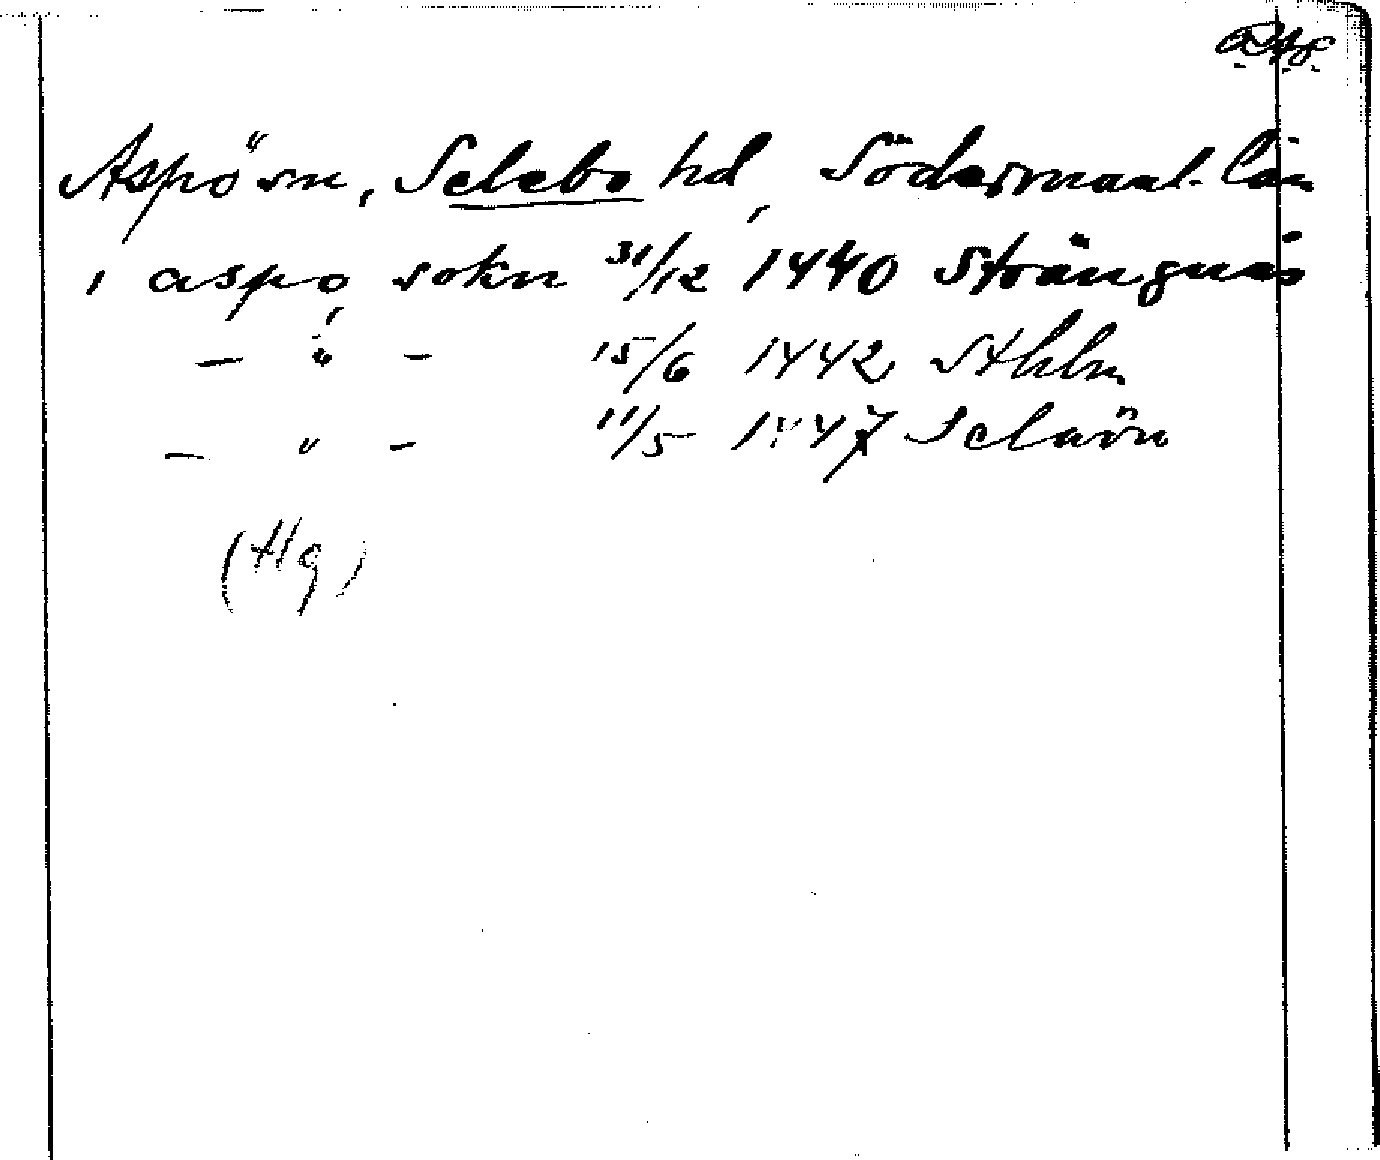 Aspö sn, Selebo hd, Södermanl. län
i aspo, sokn 31/12 1440 Strängnäs
— " — 15/6 1442 Sthlm
— " — 11/5 1447 Selaön
(Hg)